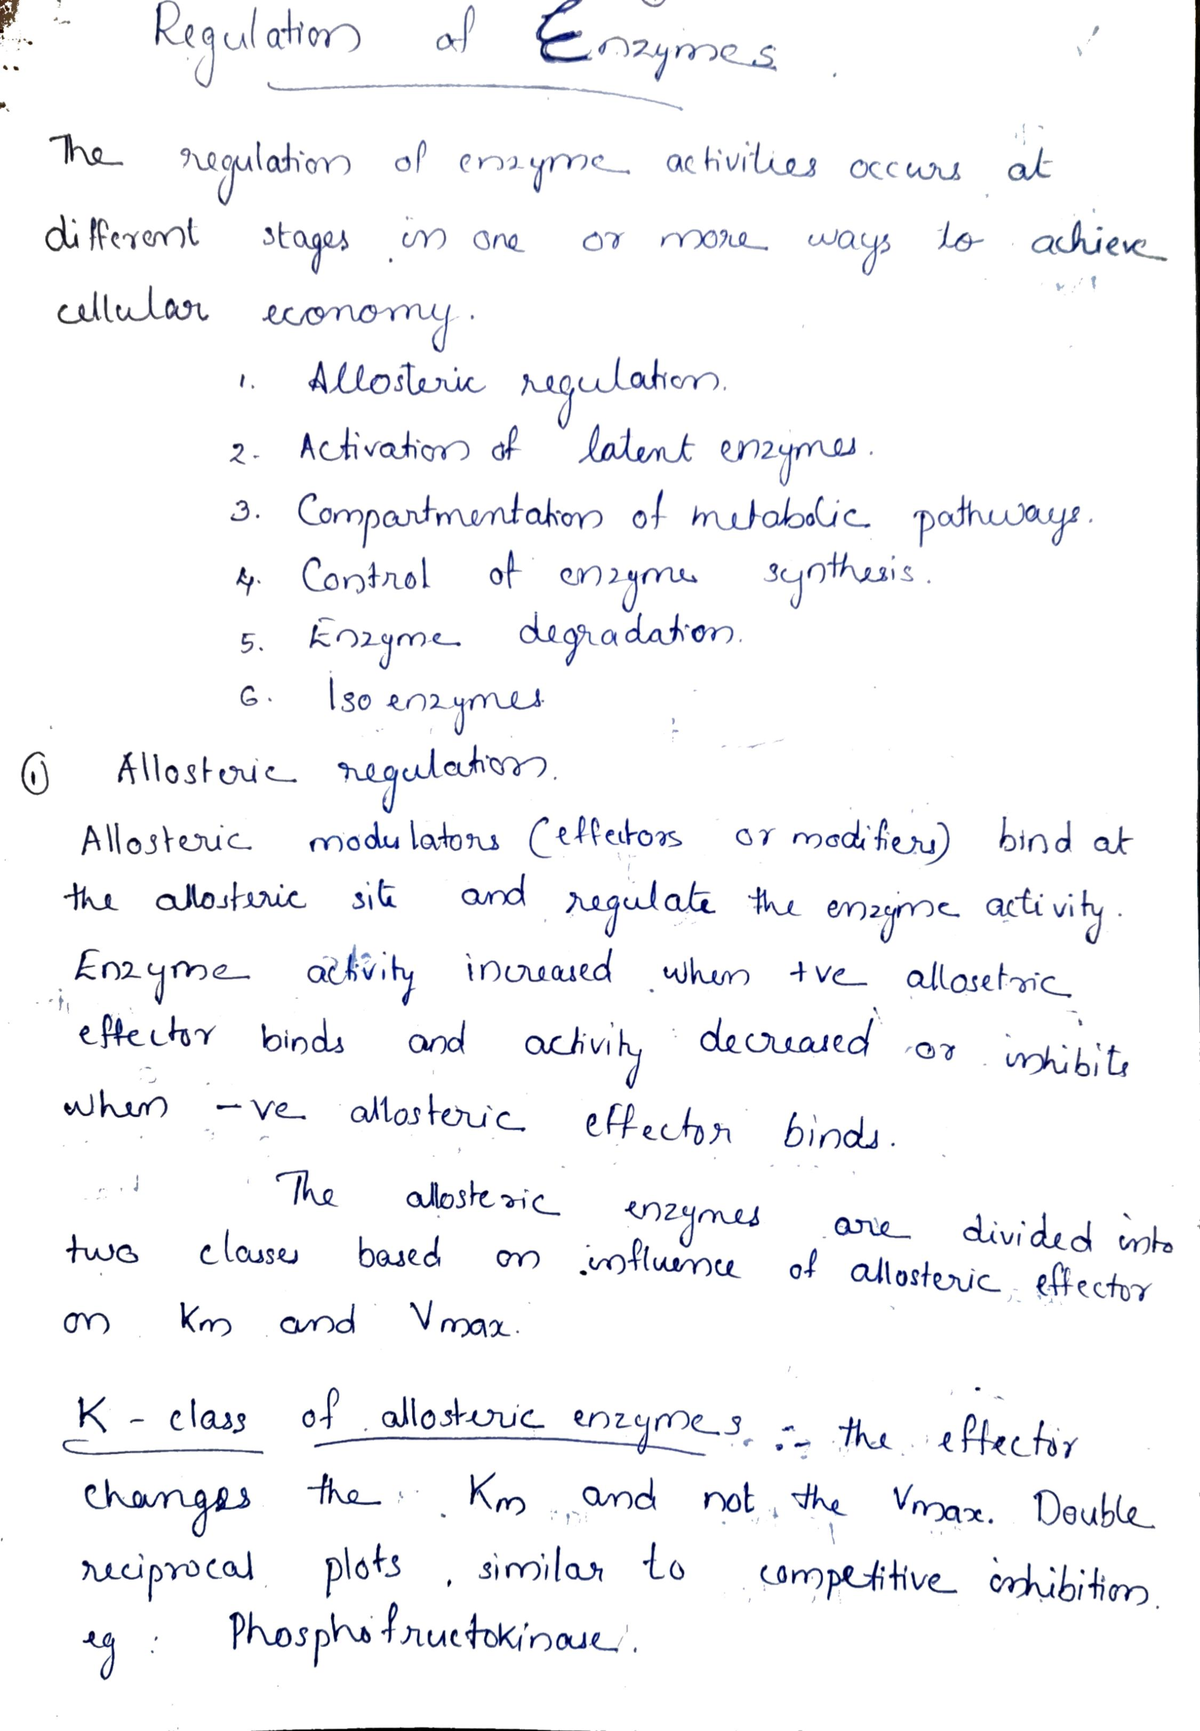 Regulation of Enzymes.
The regulation of enzyme activities occurs at
different stages in one or more ways to achieve
cellular economy.
1. Allosteric regulation.
2. Activation of latent enzymes.
3. Compartmentation of metabolic pathways.
4. Control of enzyme synthesis.
5. Enzyme degradation.
6. Iso enzymes
① Allosteric regulation.
Allosteric modulators (effectors or modifiers) bind at
the allosteric site and regulate the enzyme activity.
Enzyme activity increased when +ve allosetric
effector binds and activity decreased or inhibits
when -ve allosteric effector binds.
The allosteric enzymes are divided into
two classes based on influence of allosteric effector
on Km and Vmax.
K - class of allosteric enzymes :- the effector
changes the Km and not the Vmax. Double
reciprocal plots, similar to competitive inhibition.
eg : Phosphofructokinase.